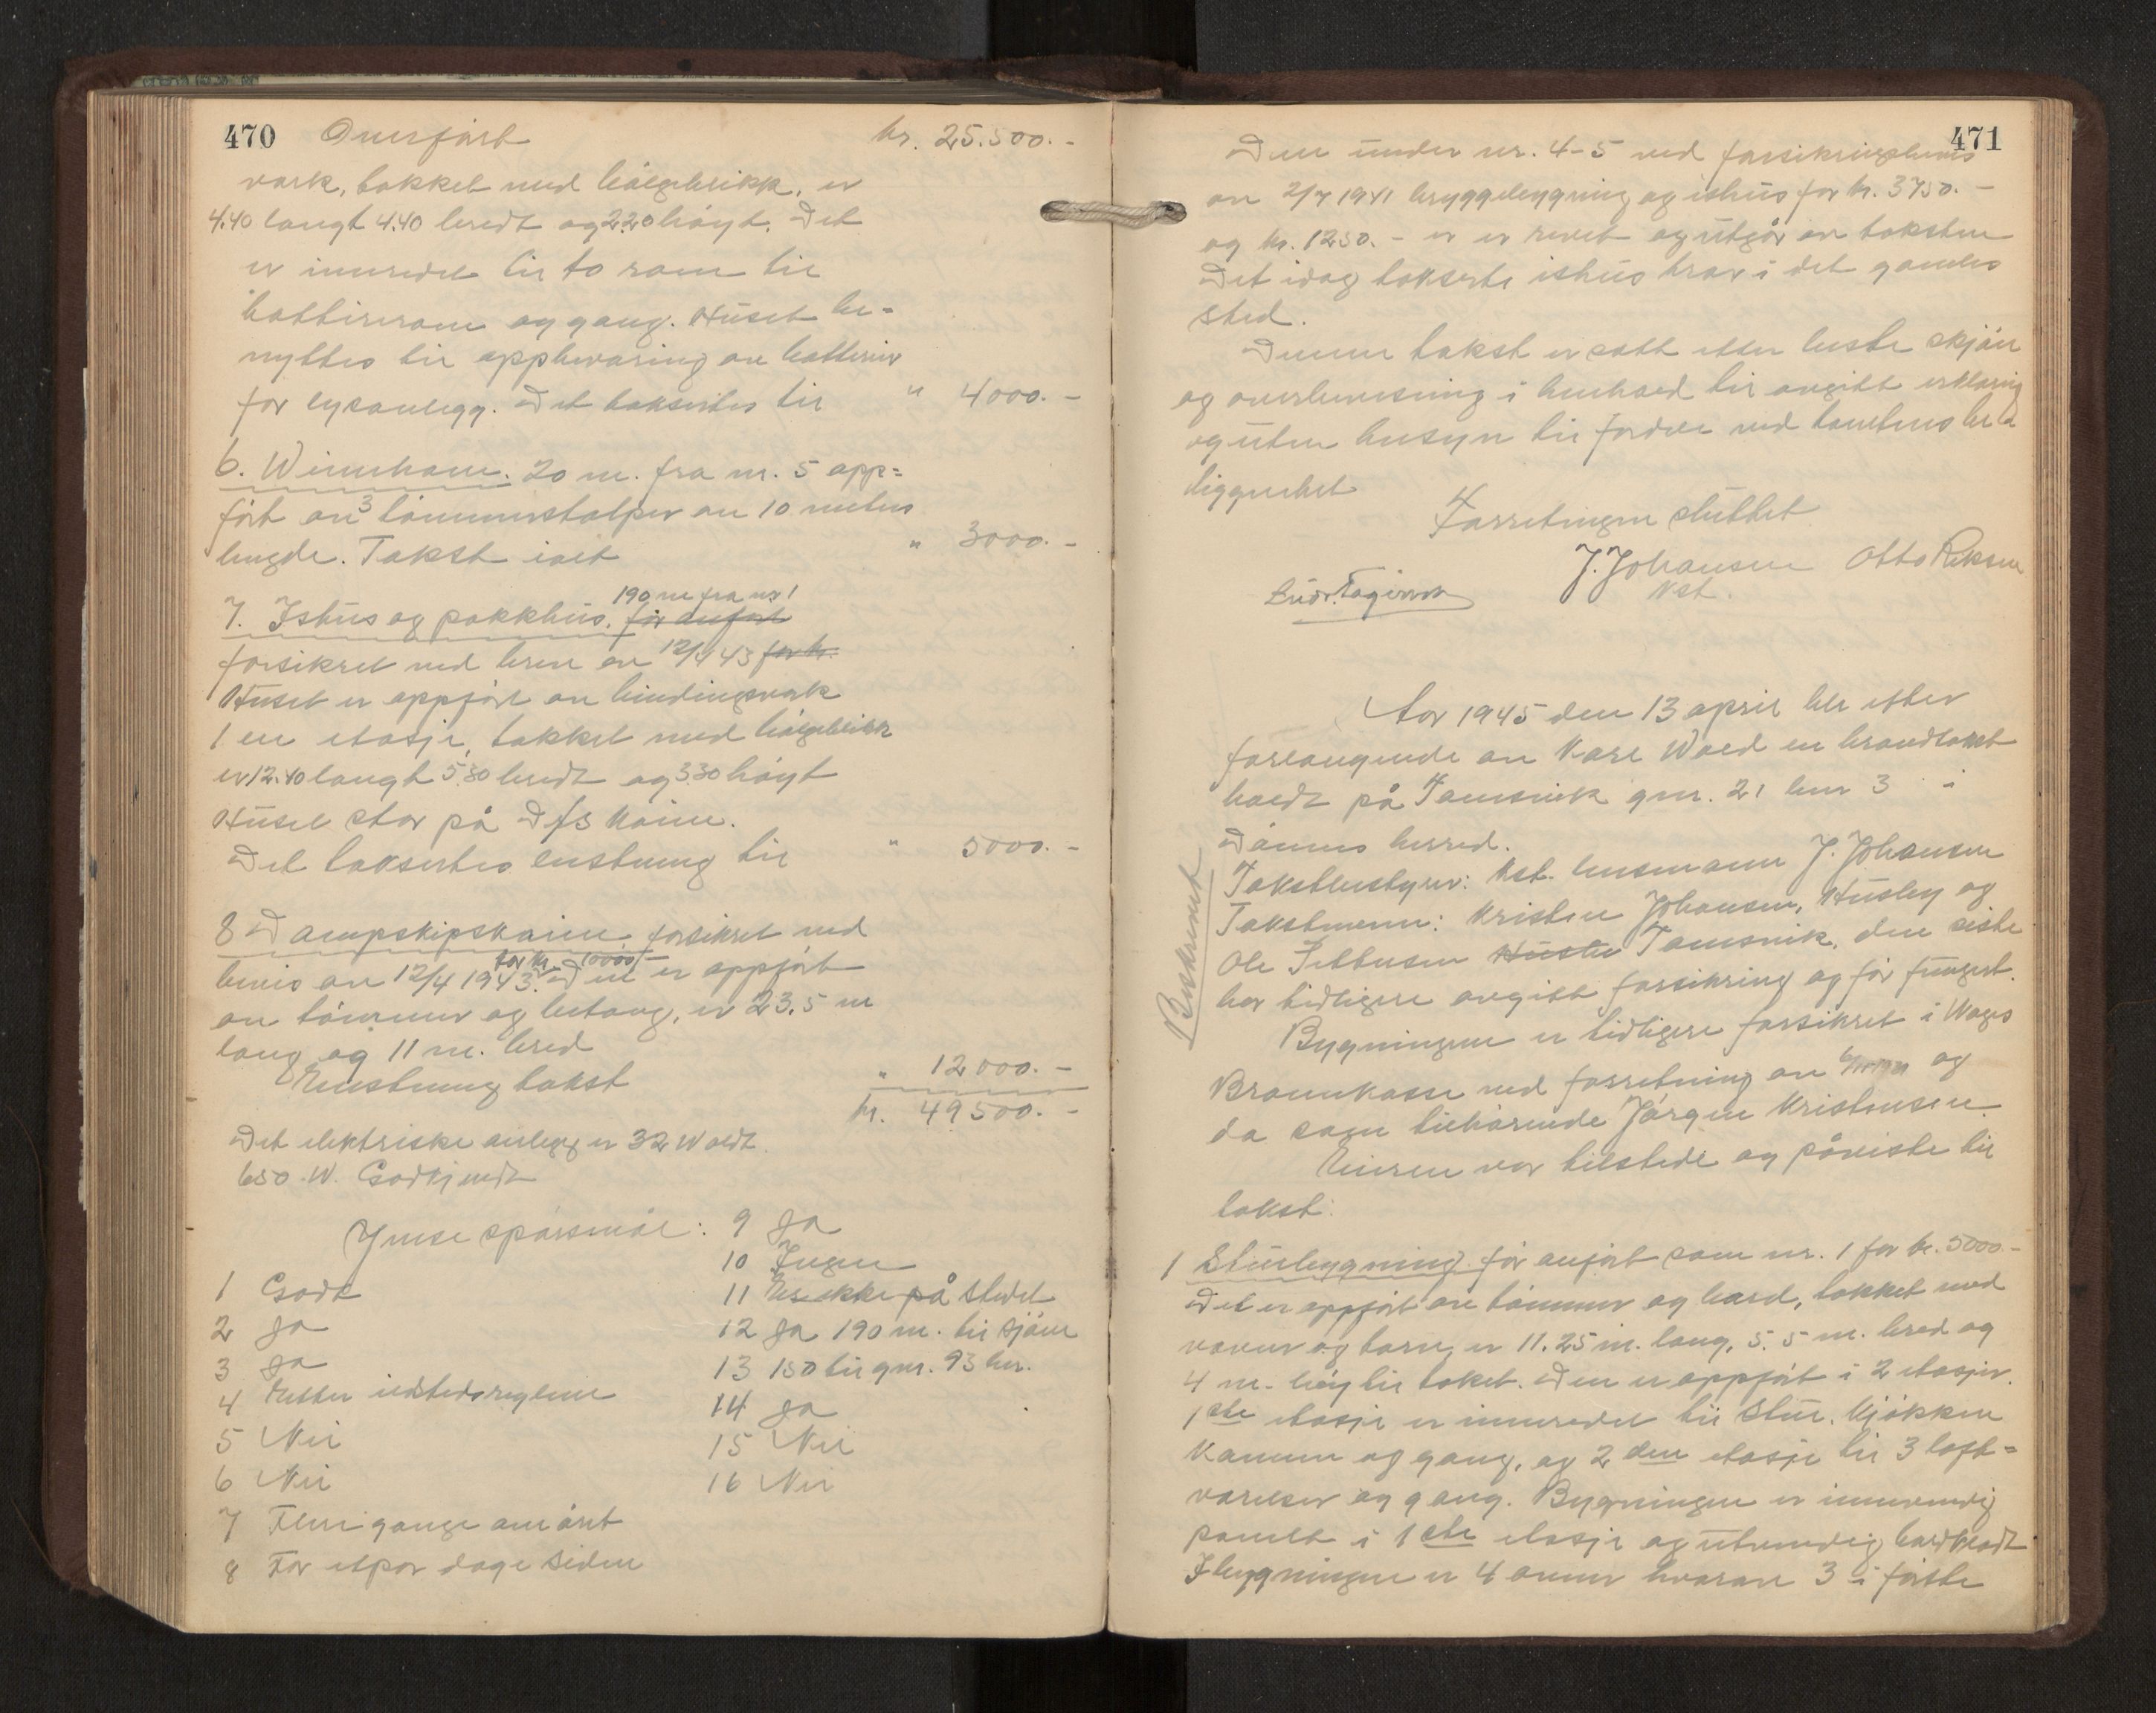 470 Overført kr. 25.500.-
verk, takket med bølgeblikk, er
4.40 langt 4.40 bredt og 2.20 høyt. Det
er innredet til to rom til
batterirom og gang. Huset be-
nyttes til oppbevaring av batterier
for lysanlegg. Det takseres til " 4000.-
6. Winnhaue. 20 m. fra nr. 5 opp-
ført av 3 tømmerstolper av 10 meters
lengde. Takst ialt " 3000.-
190 m fra nr 1
7. Ishus og pakkhus. før anført
forsikret ved brev av 12/4 43 for kr.
Huset er oppført av bindingsverk
1 en etasje, takket med bølgeblikk
er 12.40 langt 5.30 bredt og 3.30 høyt
Huset står på D/S kaien.
Det takseres enstemmig til " 5000.-
8 Dampskipskaien forsikret ved
for kr. 10000.-
bevis av 12/4 1943. Den er oppført
av tømmer og betong, er 23.5 m
lang og 11 m. bred
Enstemmig takst " 12000.-
kr. 49500.-
Det elektriske anlegg er 32 Woldt.
650. W. Godkjendt
Ymse spørsmål: 9 Ja
10 Ingen
1 Godt 11 Er ikke på stedet
2 Ja 12 Ja 190 m. til sjøen
3 Ja 13 150 til gnr. 93 bnr.
4 Etter isteds reglene 14 Ja
5 Nei 15 Nei
6 Nei 16 Nei
7 Flere gange om året
8 For etpar dage siden
471
Den under nr. 4-5 ved forsikringsbevis
av 2/7 1941 bryggebygning og ishus for kr. 3750.-
og kr. 1250.- er er revet og utgår av taksten
Det idag takserte ishus står i det gamles
sted.
Denne takst er satt etter beste skjøn
og overbevisning i henhold til avgitt erklæring
og uten hensyn til fordel ved tomtens be-
liggenhet
Forretningen sluttet
J. Johansen Otto Riksen
Kst.
År 1945 den 13 april ble efter
forlangende av Karl Wold en brandtakst
holdt på Tomsvik gnr. 21 bnr 3 i
Dønnes herred.
Takstbestyrer: Kst. lensmann J. Johansen
Takstmenn: Kristen Johansen, Husby og
Ole Tettusen Husby Tomsvik, den siste
har tidligere avgitt forsikring og før fungert.
Beskrevet
Bygningene er tidligere forsikret i Norges
Brannkasse ved forretning av og
da som tilhørende Jørgen Kristensen
Eieren var tilstede og påviste til
takst:
1 Stuebygning før anført som nr. 1 for kr. 5000.-
Det er oppført av tømmer og bord, takket med
never og torv, er 11.25 m. lang, 5.5 m. bred og
4 m. høy til taket. Den er oppført i 2 etasjer.
1ste etasje er innredet til Stue, Kjøkken
Kammer og gang, og 2den etasje til 3 loft-
værelser og gang. Bygningen er innvendig
panelt i 1ste etasje og utvendig bordkledt
I bygningen er 4 ovner hvorav 3 i første